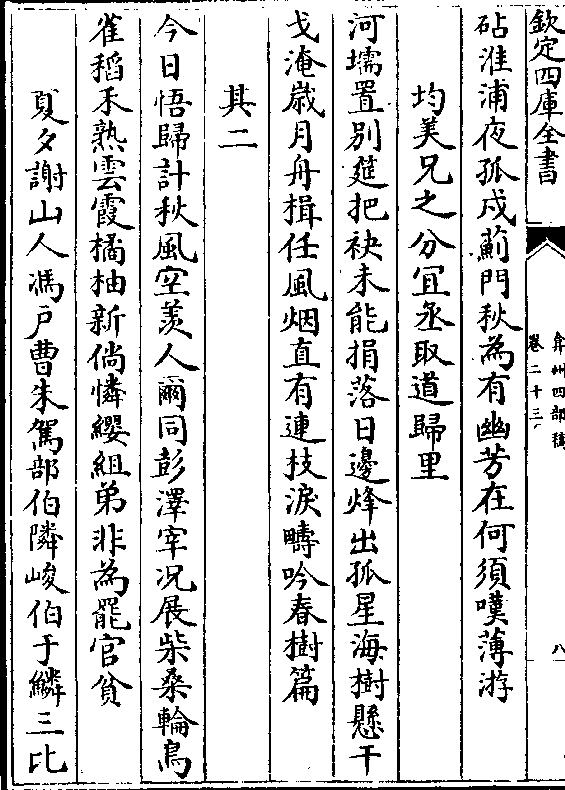 欽定四庫全書
弇州四部稿
卷二十三
八
砧淮浦夜孤戍薊門秋為有幽芳在何須嘆薄游
均美兄之分宜丞取道歸里
河壖置别筵把袂未能捐落日邊烽出孤星海樹懸干
戈淹歲月舟揖任風烟直有連技淚疇吟春樹篇
其二
今日悟歸計秋風空羡人爾同彭澤宰况展柴桑輪鳥
雀稻禾熟雲霞橘柚新倘憐纓組弟非為罷官貧
夏夕謝山人馮户曹朱駕部伯隣峻伯于鱗三比